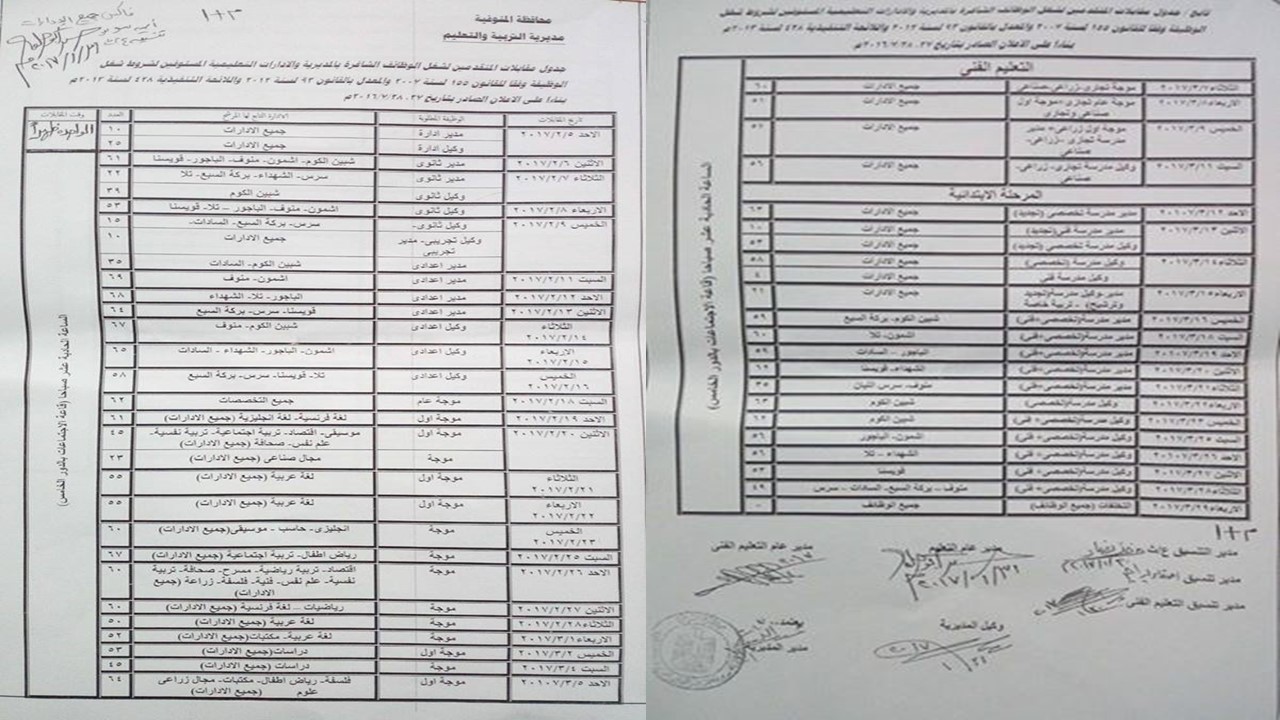 محافظة المنوفية
مديرية التربية والتعليم
جدول مقابلات المتقدمين لشغل الوظائف الشاغرة بالمديرية والادارات التعليمية المستوفين لشروط شغل
الوظيفة وفقا للقانون ١٥٥ لسنة ٢٠٠٧ والمعدل بالقانون ٩٣ لسنة ٢٠١٢ واللائحة التنفيذية ٤٢٨ لسنة ٢٠١٣م
بناءا على الاعلان الصادر بتاريخ ٢٧، ٢٠١٦/٧/٢٨م
تاريخ المقابلات الوظيفة المطلوبة الادارة التابع لها المرشح العدد وقت المقابلات
الاحد ٢٠١٧/٢/٥ مدير ادارة جميع الادارات ١٠
وكيل ادارة جميع الادارات ٢٥
الاثنين ٢٠١٧/٢/٦ مدير ثانوى شبين الكوم- اشمون- منوف- الباجور- قويسنا ٦١
الثلاثاء ٢٠١٧/٢/٧ مدير ثانوى سرس- الشهداء- بركة السبع- تلا ٢٢
وكيل ثانوى شبين الكوم ٣٩
الاربعاء ٢٠١٧/٢/٨ وكيل ثانوى اشمون- منوف- الباجور – تلا- قويسنا ٥٣
الخميس ٢٠١٧/٢/٩ وكيل ثانوى- سرس- بركة السبع- السادات- ١٥
وكيل تجريبى- مدير تجريبى جميع الادارات ١٠
مدير اعدادى شبين الكوم- السادات ٣٥
السبت ٢٠١٧/٢/١١ مدير اعدادى اشمون- منوف ٦٩
الاحد ٢٠١٧/٢/١٢ مدير اعدادى الباجور- تلا- الشهداء ٦٨
الاثنين ٢٠١٧/٢/١٣ مدير اعدادى قويسنا- سرس- بركة السبع ٦٤
الثلاثاء ٢٠١٧/٢/١٤ وكيل اعدادى شبين الكوم- منوف ٦٧
الاربعاء ٢٠١٧/٢/١٥ وكيل اعدادى اشمون- الباجور- الشهداء - السادات ٦٥
الخميس ٢٠١٧/٢/١٦ وكيل اعدادى تلا- قويسنا- سرس- بركة السبع ٥٨
السبت ٢٠١٧/٢/١٨ موجة عام جميع التخصصات ٦٢
الاحد ٢٠١٧/٢/١٩ موجة اول لغة فرنسية- لغة انجليزية (جميع الادارات) ٦١
الاثنين ٢٠١٧/٢/٢٠ موجة اول موسيقى- اقتصاد- تربية اجتماعية- تربية نفسية- علم نفس- صحافة (جميع الادارات) ٤٥
موجة مجال صناعى (جميع الادارات) ٢٣
الثلاثاء ٢٠١٧/٢/٢١ موجة اول لغة عربية (جميع الادارات) ٥٥
الاربعاء ٢٠١٧/٢/٢٢ موجة اول لغة عربية (جميع الادارات) ٥٥
الخميس ٢٠١٧/٢/٢٣ موجة انجليزى- حاسب - موسيقى(جميع الادارات) ٦٠
السبت ٢٠١٧/٢/٢٥ موجة رياض اطفال- تربية اجتماعية (جميع الادارات) ٦٧
الاحد ٢٠١٧/٢/٢٦ موجة اقتصاد- تربية رياضية- مسرح- صحافة- تربية نفسية- علم نفس- فنية- فلسفة- زراعة (جميع الادارات) ٦٠
الاثنين ٢٠١٧/٢/٢٧ موجة رياضيات – لغة فرنسية (جميع الادارات) ٦٠
الثلاثاء ٢٠١٧/٢/٢٨ موجة لغة عربية (جميع الادارات) ٥٠
الاربعاء ٢٠١٧/٣/١ موجة لغة عربية- مكتبات(جميع الادارات) ٥٢
الخميس ٢٠١٧/٣/٢ موجة اول دراسات(جميع الادارات) ٥٣
السبت ٢٠١٧/٣/٤ موجة دراسات (جميع الادارات) ٤٥
الاحد ٢٠١٠٧/٣/٥ موجة اول فلسفة- رياض اطفال- مكتبات- مجال زراعى علوم (جميع الادارات) ٦٤
الساعة الحادية عشر صباحا (قاعة الاجتماعات بالدور الخامس)
تابع / جدول مقابلات المتقدمين لشغل الوظائف الشاغرة بالمديرية والادارات التعليمية المستوفين لشروط شغل
الوظيفة وفقا للقانون ١٥٥ لسنة ٢٠٠٧ والمعدل بالقانون ٩٣ لسنة ٢٠١٢ واللائحة التنفيذية ٤٢٨ لسنة ٢٠١٣م
بناءا على الاعلان الصادر بتاريخ ٢٧، ٢٠١٦/٧/٢٨م
التعليم الفنى
الثلاثاء ٢٠١٧/٣/٧ موجة تجارى-زراعى-صناعى جميع الادارات ٦٠
الاربعاء ٢٠١٧/٣/٨ موجة عام تجارى+موجة اول صناعى وتجارى جميع الادارات ٥١
الخميس ٢٠١٧/٣/٩ موجة اول زراعى+ مدير مدرسة تجارى –زراعى- صناعى جميع الادارات ٥٧
السبت ٢٠١٧/٣/١١ وكيل مدرسة تجارى- زراعى- صناعى جميع الادارات ٥٦
المرحلة الابتدائية
الاحد ٢٠١٠٧/٣/١٢ مدير مدرسة تخصصى (تجديد) جميع الادارات ٦٣
الاثنين ٢٠١٧/٣/١٣ مدير مدرسة فنى(تجديد) جميع الادارات ١٠
وكيل مدرسة تخصصى (تجديد) جميع الادارات ٥٣
الثلاثاء ٢٠١٧/٣/١٤ وكيل مدرسة (تخصصى) جميع الادارات ٥٨
وكيل مدرسة فنى جميع الادارات ٤
الاربعاء ٢٠١٧/٣/١٥ مدير-وكيل مدرسة(تجديد وترشيح) - تربية خاصة جميع الادارات ٢١
الخميس ٢٠١٧/٣/١٦ مدير مدرسة(تخصصى+ فنى) شبين الكوم- بركة السبع ٥٩
السبت ٢٠١٧/٣/١٨ مدير مدرسة(تخصصى+ فنى) اشمون- تلا ٦٠
الاحد ٢٠١٠٧/٣/١٩ مدير مدرسة(تخصصى+فنى) الباجور - السادات ٥٩
الاثنين ٢٠١٧/٣/٢٠ مدير مدرسة(تخصصى+فنى) الشهداء- قويسنا ٦٢
الثلاثاء ٢٠١٧/٣/٢١ مدير مدرسة(تخصصى+فنى) منوف- سرس الليان ٣٥
الاربعاء ٢٠١٧/٣/٢٢ وكيل مدرسة(تخصصى) شبين الكوم ٦٣
الخميس ٢٠١٧/٣/٢٣ وكيل مدرسة(تخصصى+ فنى) شبين الكوم ٦٢
السبت ٢٠١٧/٣/٢٥ وكيل مدرسة(تخصصى+ فنى) اشمون- الباجور ٥٦
الاحد ٢٠١٠٧/٣/٢٦ وكيل مدرسة(تخصصى+ فنى) الشهداء – تلا ٥٦
الاثنين ٢٠١٧/٣/٢٧ وكيل مدرسة(تخصصى+ فنى) قويسنا ٥٣
الثلاثاء ٢٠١٧/٣/٢٨ وكيل مدرسة(تخصصى+ فنى) منوف – بركة السبع- السادات - سرس ٤٩
الاربعاء ٢٠١٧/٣/٢٩ التخلفات (جميع الوظائف) جميع الوظائف -
الساعة الحادية عشر صباحا (قاعة الاجتماعات بالدور الخامس)
مدير التنسيق ع/ث
مدير عام التعليم
مدير عام التعليم الفنى
مدير تنسيق
مدير تنسيق التعليم الفنى
وكيل المديرية
يعتمد،،،
مدير المديرية